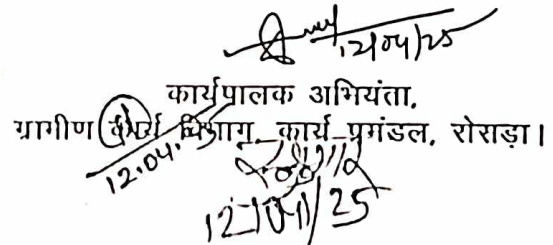 12/04/25
कार्यपालक अभियंता,
ग्रामीण कार्य विभाग, कार्य प्रमंडल, रोसड़ा।
12.04.
12/04/25